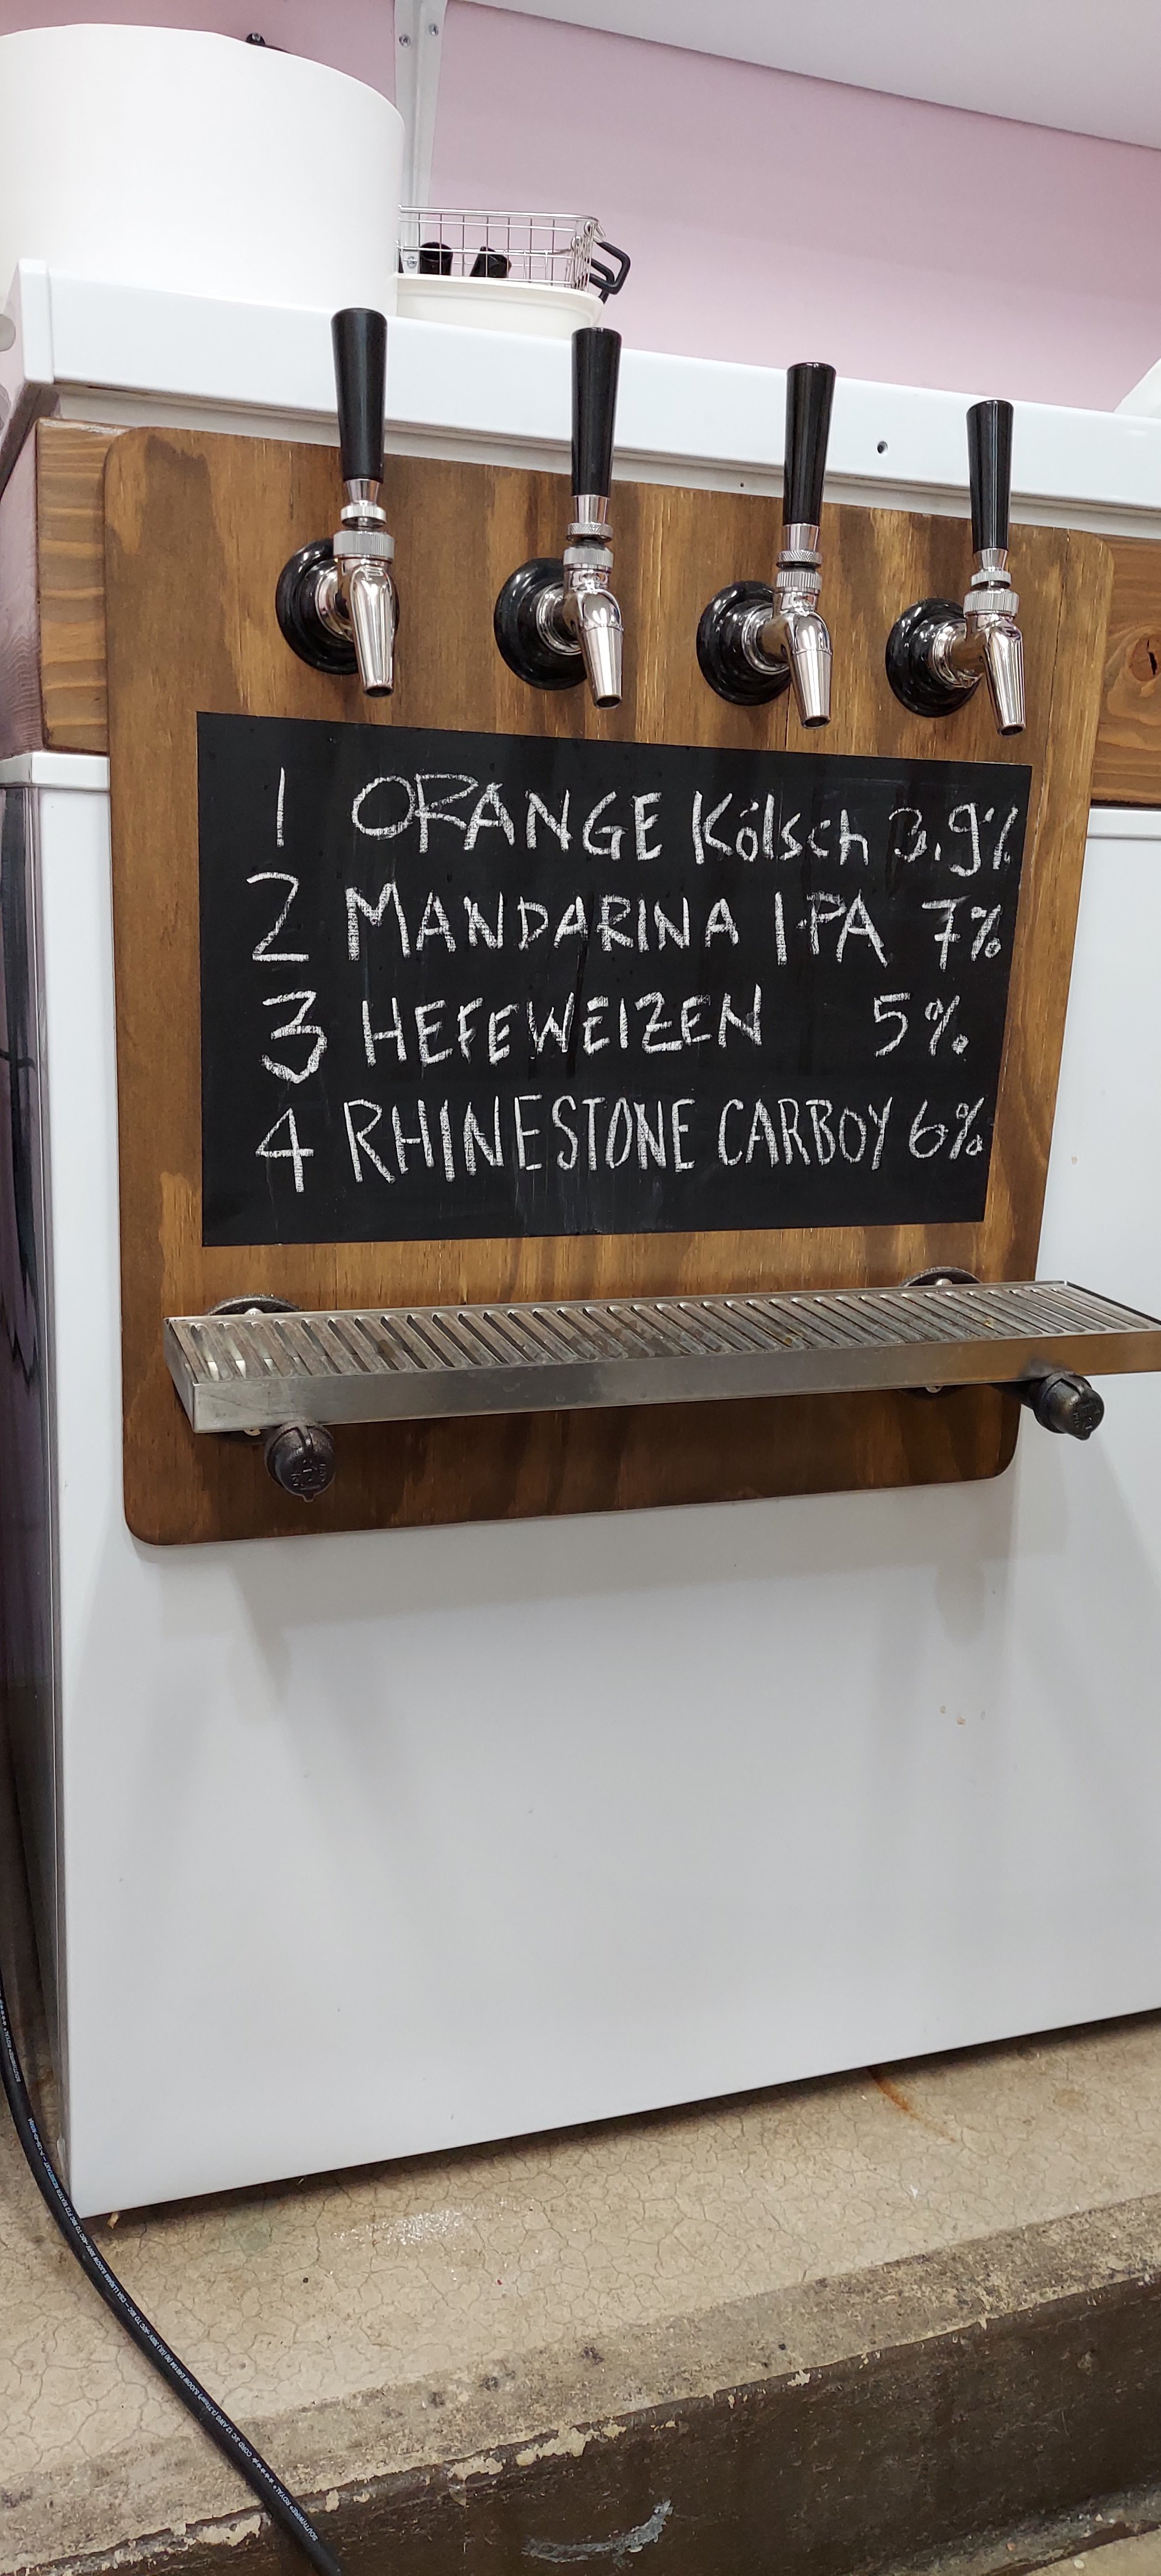 1 ORANGE Kölsch 3.9%
2 MANDARINA IPA 7%
3 HEFEWEIZEN 5%
4 RHINESTONE CARBOY 6%